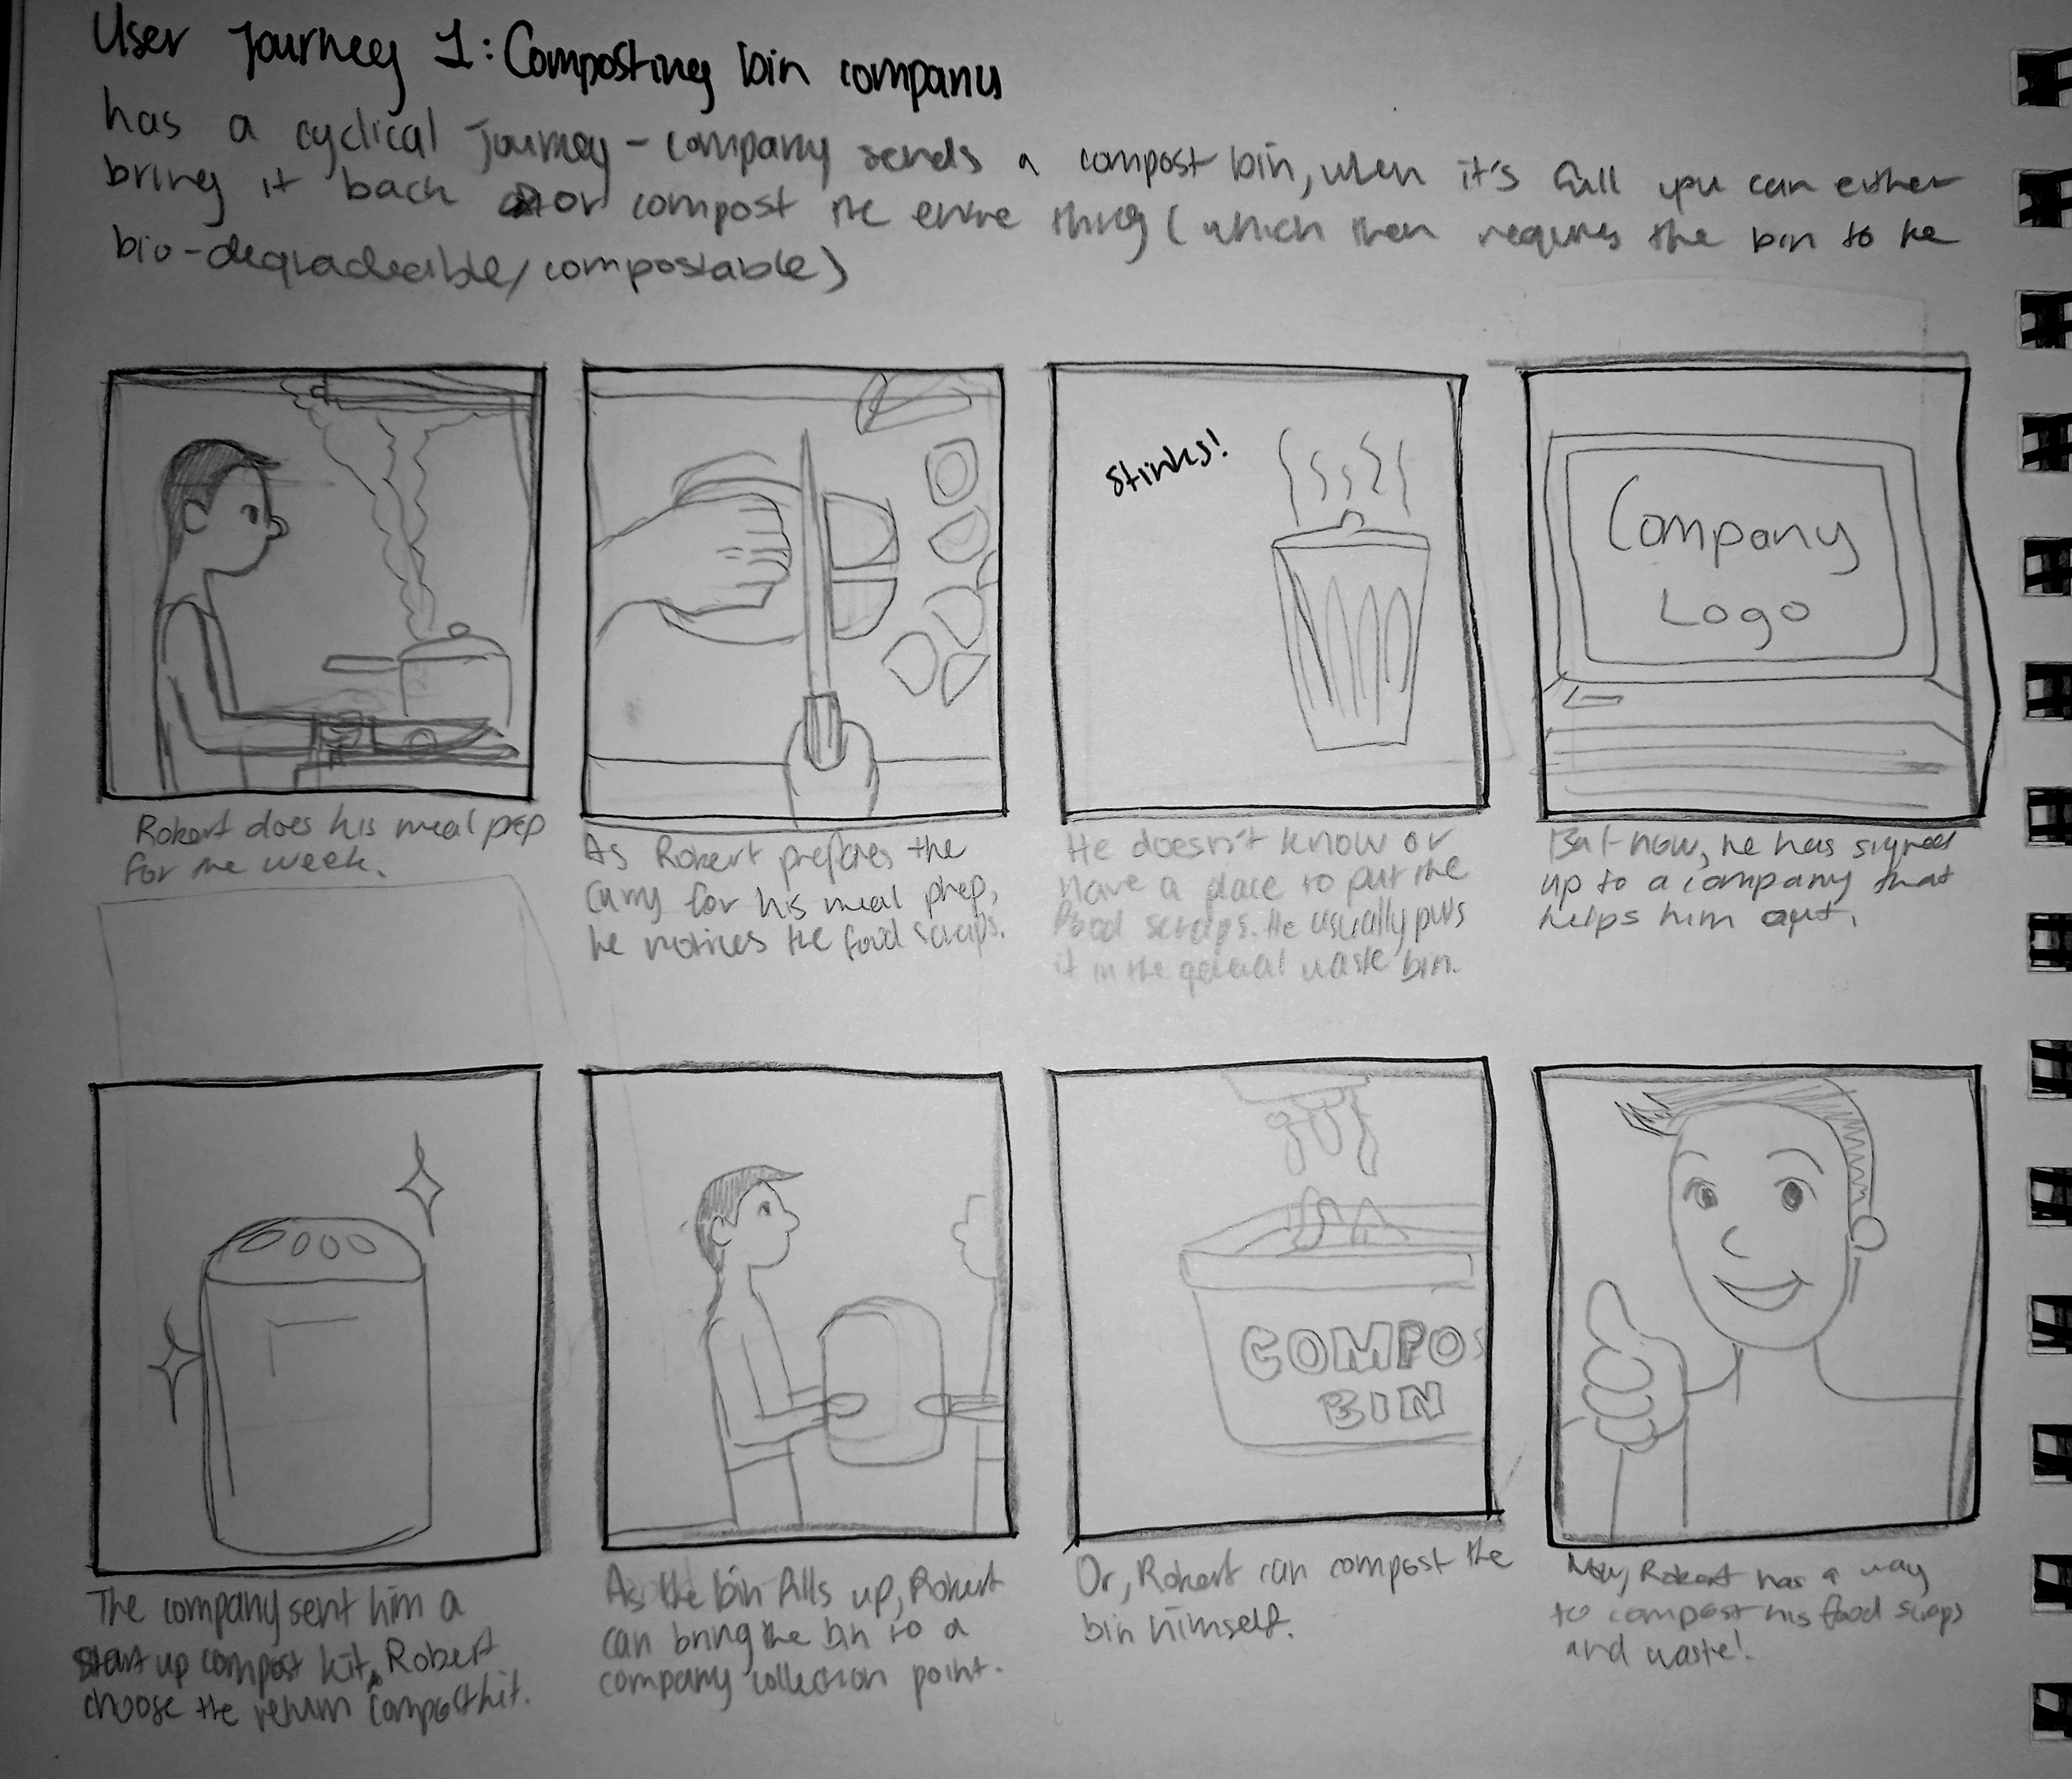 User Journey 1: Composting bin company
has a cyclical journey - company sends a compost bin, when it's full you can either
bring it back or compost the entire thing (which then requires the bin to be
bio-degradeable/compostable)
Stinks!
Company
Logo
Robert does his meal prep
for the week.
As Robert prepares the
curry for his meal prep,
he notices the food scraps.
He doesn't know or
have a place to put the
food scraps. He usually puts
it in the general waste bin.
But now, he has signed
up to a company that
helps him out.
COMPOS
BIN
The company sent him a
start up compost kit, Robert
choose the return compost kit.
As the bin fills up, Robert
can bring the bin to a
company collection point.
Or, Robert can compost the
bin himself.
Now, Robert has a way
to compost his food scraps
and waste!